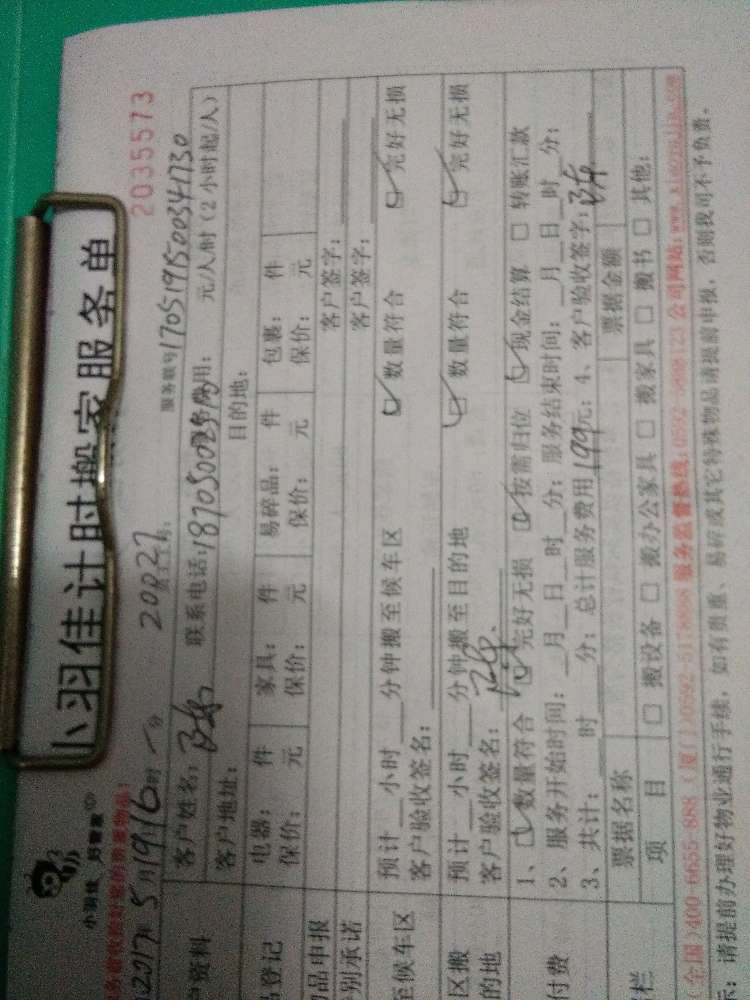 小羽佳计时搬家服务单
2035573
小羽佳 好管家
2017年5月19日16时 分
20027
服务联号17051915003417130
客户姓名:
联系电话:
服务费用: 元/人/时(2小时起/人)
客户地址:
目的地:
电器: 件 家具: 件 易碎品: 件 包裹: 件
保价: 元 保价: 元 保价: 元 保价: 元
物品申报
客户签字:
别承诺
客户签字:
预计 小时 分钟搬至候车区 数量符合 完好无损
至候车区
客户验收签名:
预计 小时 分钟搬至目的地 数量符合 完好无损
客户验收签名:
1、 数量符合 完好无损 按需归位 现金结算 转账汇款
付费
2、服务开始时间: 月 日 时 分;服务结束时间: 月 日 时 分;
3、共计: 时 分;总计服务费用199元;4、客户验收签字:
票据名称 票据金额
项 目 搬设备 搬办公家具 搬家具 搬书 其他:
(全国)400-6655-888 (厦门)0592-5178888 服务监督热线:0592-5888123 公司网站:
示:请提前办理好物业通行手续,如有贵重、易碎或其它特殊物品请提前申报,否则我司不予负责。